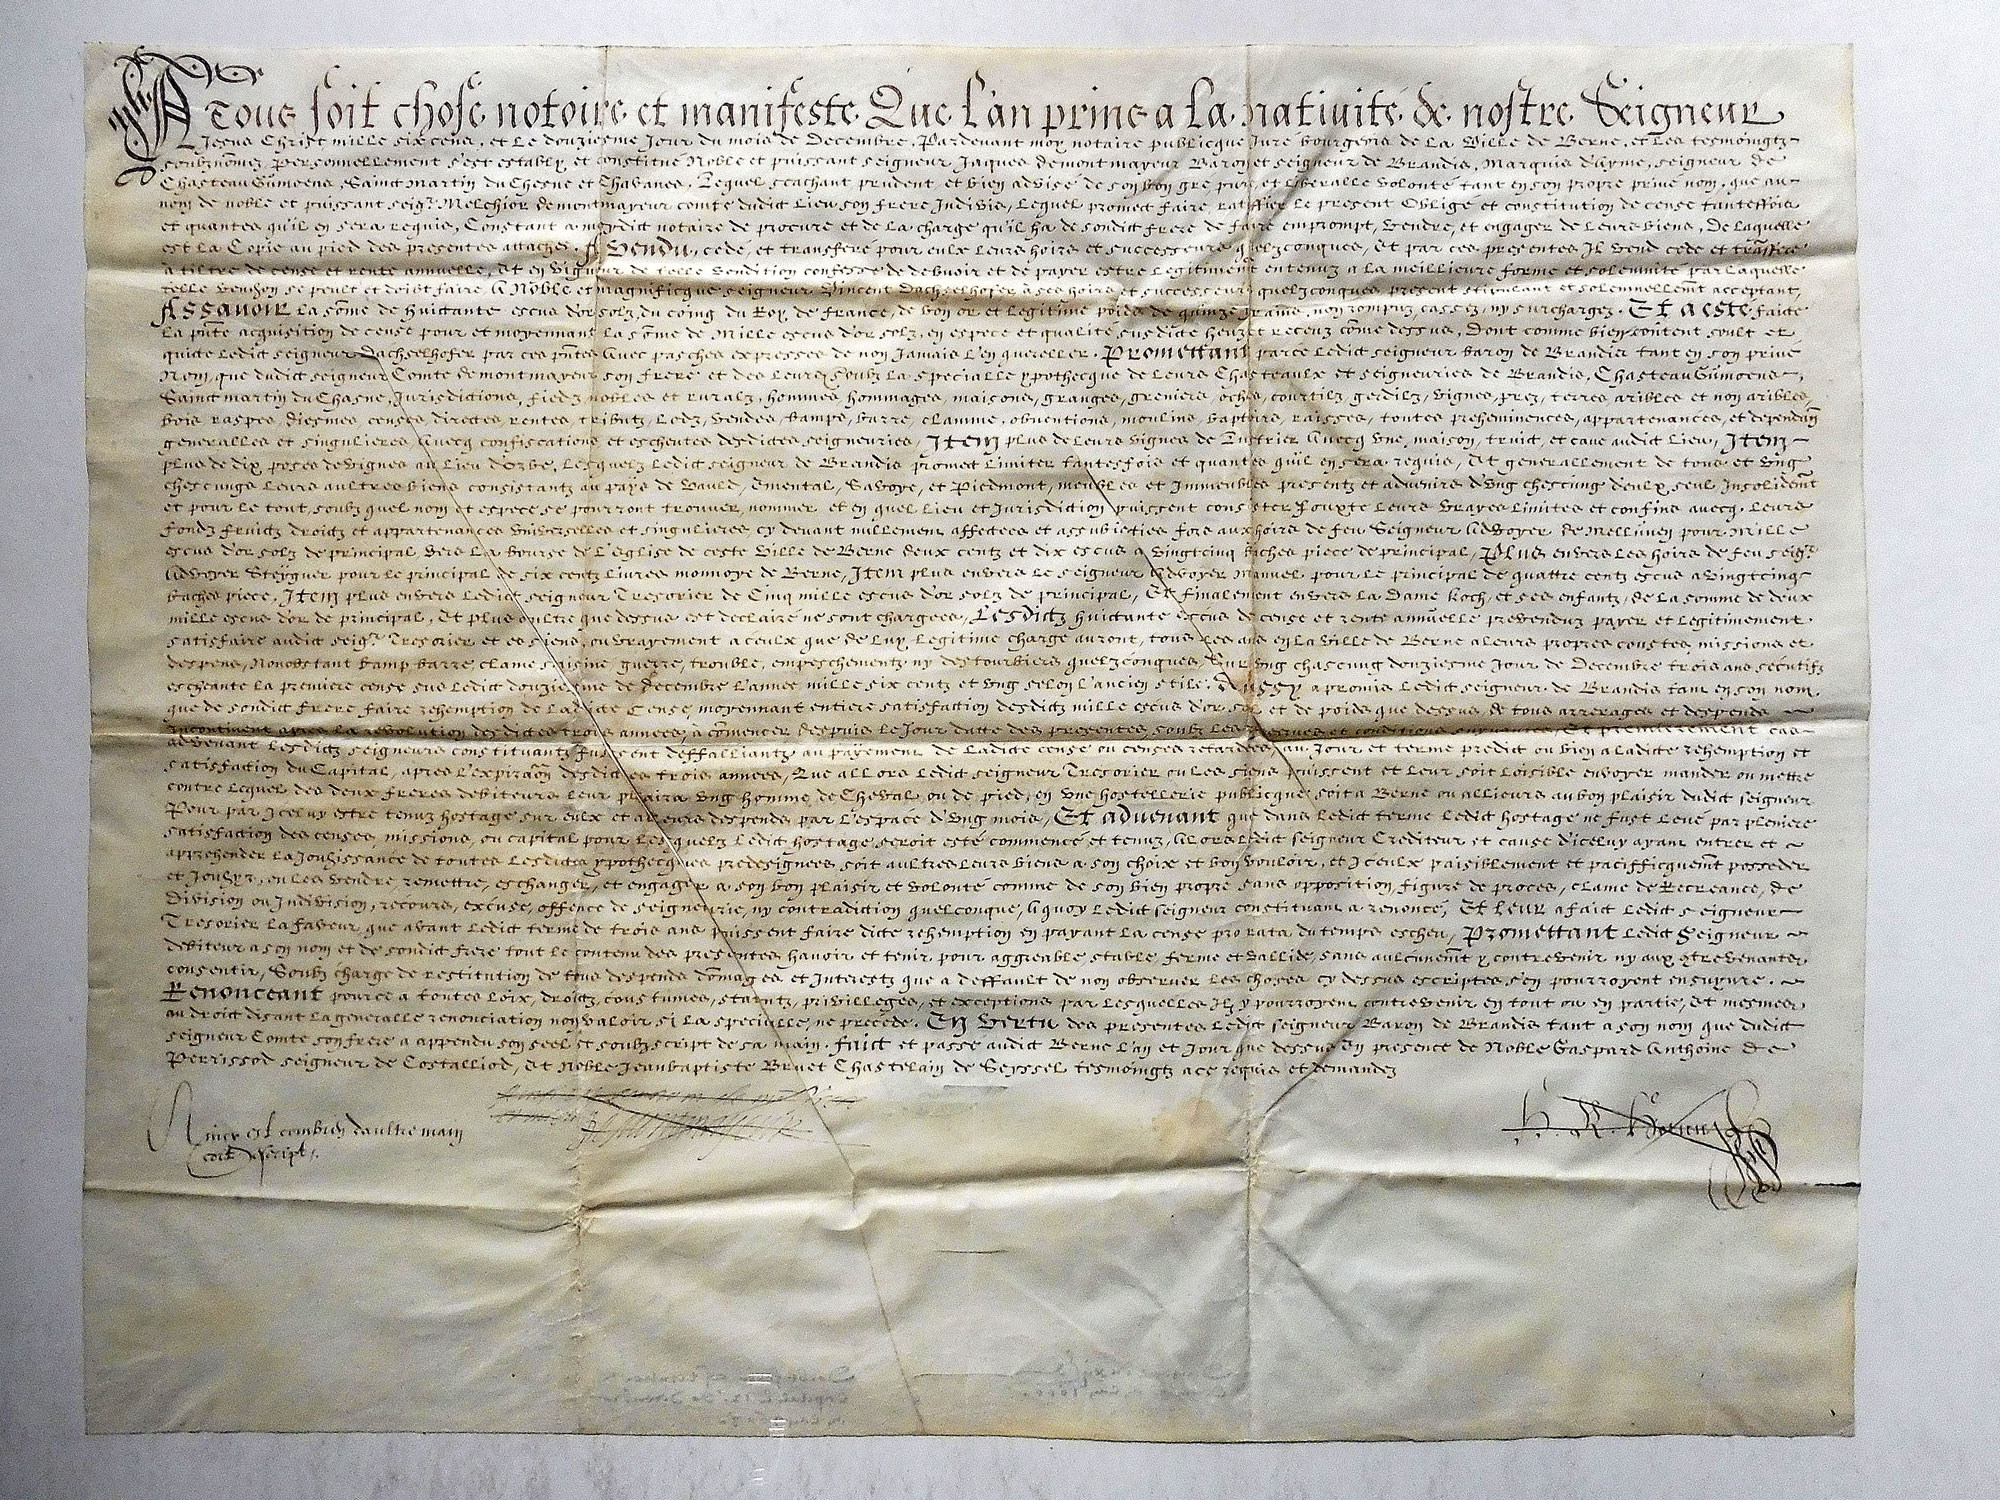 A Tous soit chose notoire et manifeste Que l'an prins a la nativité de nostre Seigneur
Jesus Christ mille six cens, et le douziesme Jour du mois de Decembre, Pardevant moy notaire publicque Juré bourgeois de la Ville de Berne, et les tesmoingtz
soubznomez, Personnellement s'est establÿ et constitué Noble et puissant seigneur Jaques demontmayeur Baron et seigneur de Brandis, Marquis d'ayme, seigneur de
ChasteauGumoens, Sainct Martin du Chesne et Chavanes, Lequel scachant prudent et bien advisé de son bon gre pure et liberalle volonté tant en son propre privé nom, que au
nom de noble et puissant seigr. Melchior demontmayeur comte dudict lieu son frere Indivis, Lequel promect faire ratiffier le present Obligé et constitution de cense tanteffois
et quantes qu'il en sera requis, Constant a moydict notaire de procure et de la charge qu'il ha de sondict frere de faire emprompt, vendre, et engager de leurs biens, De laquelle
est la Copie au pied des presentes attachee, A Vendu, cedé et transferé pour eulx leurs hoirs et successeurs quelzconques, Et par ces presentes Il vend cede et transfere
a tiltre de cense et rente annuelle, Et en vigueur de telle Vendition confesse de debvoir et de payer estre legitiment entenuz a la meillieure forme et solemnité par laquelle
telle vendion se peult et doibt faire A Noble et magnificque seigneur Vincent Dachselhofer a ses hoirs et successeurs quelzconques, present stipulant et solemnellemt acceptant,
Assavoir la some de huictante escus d'or solz, du coing du Roy de France, de bon or et legitime poids de quinze grains, non rompuz cassez, ny surchargez. Et a esté faicte
la pnte acquisition de cense pour et moyennant la some de Mille escus d'or solz, en espece et qualité susdicte heuz et receuz come dessus, Dont comme bien content soult et
quicte ledict seigneur Dachselhofer par ces pntes Avec pasches expresses de non Jamais l'en quereller. Promettant parce ledict seigneur baron de Brandis tant en son privé
Nom, que dudict seigneur Comte demontmayeur son frere et des leurs, soubz la specialle ypothecque de leurs Chasteaulx et seigneuries de Brandis, ChasteauGumoens,
Sainct martin du Chasne, Jurisdictions, fiedz nobles et ruralz, hommes hommages, maisons, granges, greniers, eches, courtilz, gerdilz, vignes, prez, terres aribles et non aribles,
bois raspes, diesmes censes, directes rentes, tributz, Lodz, vendes, bamps, barre, clamme, obventions, moulins, baptoirs, raisses, toutes preheminences, appartenances, et dependan
generalles et singulieres Avecq confiscations et escheutes desdictes seigneuries, Item plus de leurs vignes de Lustrier Avecq une maison, truict, et cave audict lieu, Item
plus de dix poses de vignes au lieu d'orbe, Lesquelz ledict seigneur de Brandis promect limiter tantesfois et quantes quil en sera requis, Et generallement de tous et ung
chescungs leurs aultres biens consistantz au pays de Vauld, Emental, Savoye, et Piedmont, meubles et Immeubles presentz et advenirs d'ung chescung d'eulx seul Insolident
et pour le tout, soubz quel nom et espece se pourront trouver, nommer et en quel lieu et Jurisdiction puissent consister Jouxte leurs vrayes limites et confins avecq leurs
fondz fruictz droictz et appartenances universelles et singulieres, cy devant nullement affectees et assubiecties fors aux hoirs de feu Seigneur Advoyer de Mellunen pour Mille
escus d'or solz de principal Vers la bourse de l'Eglise de ceste Ville de Berne deux centz et dix escus a vingtcinq baches piece de principal, Plus envers les hoirs de feu seigr.
Advoyer Steÿguer pour le principal de six centz livres monnoye de Berne, Item plus envers le seigneur Advoyer Manuel pour le principal de quattre centz escus a vingtcinq
baches piece. Item plus envers ledict seigneur Tresorier de Cinq mille escus d'or solz de principal, Et finalement envers la Dame Koch, et ses enfantz, de la somme de deux
mille escus d'or de principal, Et plus oultre que dessus est declairé ne sont chargees, Lesdictz huictante escus de cense et rente annuelle prevenduz payer et legitimement
satisfaire audict seigr. Tresorier et es siens, ou vrayement a ceulx que de luy legitime charge auront, tous les ans en la Ville de Berne a leurs propres constes, missions et
despens, Nonobstant bamp barre, clame saisine guerre, trouble, empeschementz ny destourbiers quelzconques, Sur ung chascung douziesme Jour de Decembre trois ans secutifz
escheante la premiere cense sus ledict douziesme de decembre l'année mille six centz et ung selon l'ancien stile. Aussy a promis ledict seigneur de Brandis tant en son nom
que de sondict frere faire rehemption de ladicte Cense, moyennant entiere satisfaction desdictz mille escus d'or sol et de poids que dessus, de tous arrerages et despends
Incontinent apres la revolution desdictes trois années, a comencer despuis le Jour datte des presentes soubz les reserves et conditions suyvantes, Et premierement cas
advenant lesdictz seigneurs constituantz fussent deffaillantz au payement de ladicte cense ou censes retardees, au Jour et terme predict ou bien a ladicte rehemption et
satisfaction du Capital, apres l'expiration desdictes trois années, Que allors ledict seigneur Tresorier ou les siens puissent et leur soit loisible envoyer mander ou mettre
contre lequel des deux freres debiteurs leur plaira ung homme de Cheval, ou de pied, en une hostellerie publicque soit a Berne ou allieurs au bon plaisir dudict seigneur
Pour par Iceluy estre tenuz hostage sur eulx et a leurs despends par l'espace d'ung mois, Et advenant que dans ledict terme ledict hostage ne fust levé par pleniere
satisfaction des censes, missions, ou capital pour lesquelz ledict hostage seroit esté commencé et tenuz, Alors ledict seigneur Crediteur et cause d'iceluy ayant entrer et
apprehender la Jouhissance de toutes lesdictes ypothecques predesignees, soit aultres leurs biens a son choix et bon vouloir, et Iceulx paisiblement et pacifficquemt posseder
et Jouhyr, en les vendre remettre, eschanger, et engager a son bon plaisir et volonté comme de son bien propre sans opposition, figure de proces, clame de Recreance, de
Division ou Indivision, recours, excuse, offence de seigneurie, ny contradiction quelconque, A quoy ledict seigneur constituant a renoncé, Et leur a faict ledict seigneur
Tresorier la faveur, que avant ledict terme de trois ans puissent faire dicte rehemption en payant la cense pro rata du temps escheu, Promettant ledict Seigneur
debiteur a son nom et de sondict frere tout le contenu des presentes havoir et tenir pour aggreable stable ferme et vallide, sans aulcunement y contrevenir ny aux contrevenantz
consentir, Soubz charge de restitution de tous despends domages et Interestz que a deffault de non observer les choses cy dessus escriptes s'en pourroyent ensuyvre.
Renonceant pource a toutes loix, droictz, coustumes, statutz, privilleges, et exceptions par lesquelles Ilz y pourroyent contrevenir en tout ou en partie, Et mesmes
au droict disant la generalle renonciation non valoir si la specialle ne precede. En vertu des presentes ledict seigneur Baron de Brandis tant a son nom que dudict
seigneur Comte son frere a appendu son seel et soubzscript de sa main. faict et passé audict Berne l'an et Jour que dessus En presence de Noble Gaspard Anthoine de
Perrissod seigneur de Costalliod, Et Noble Jeanbaptiste Brunet Chastelain de Seyssel tesmoingtz a ce requis et demandez